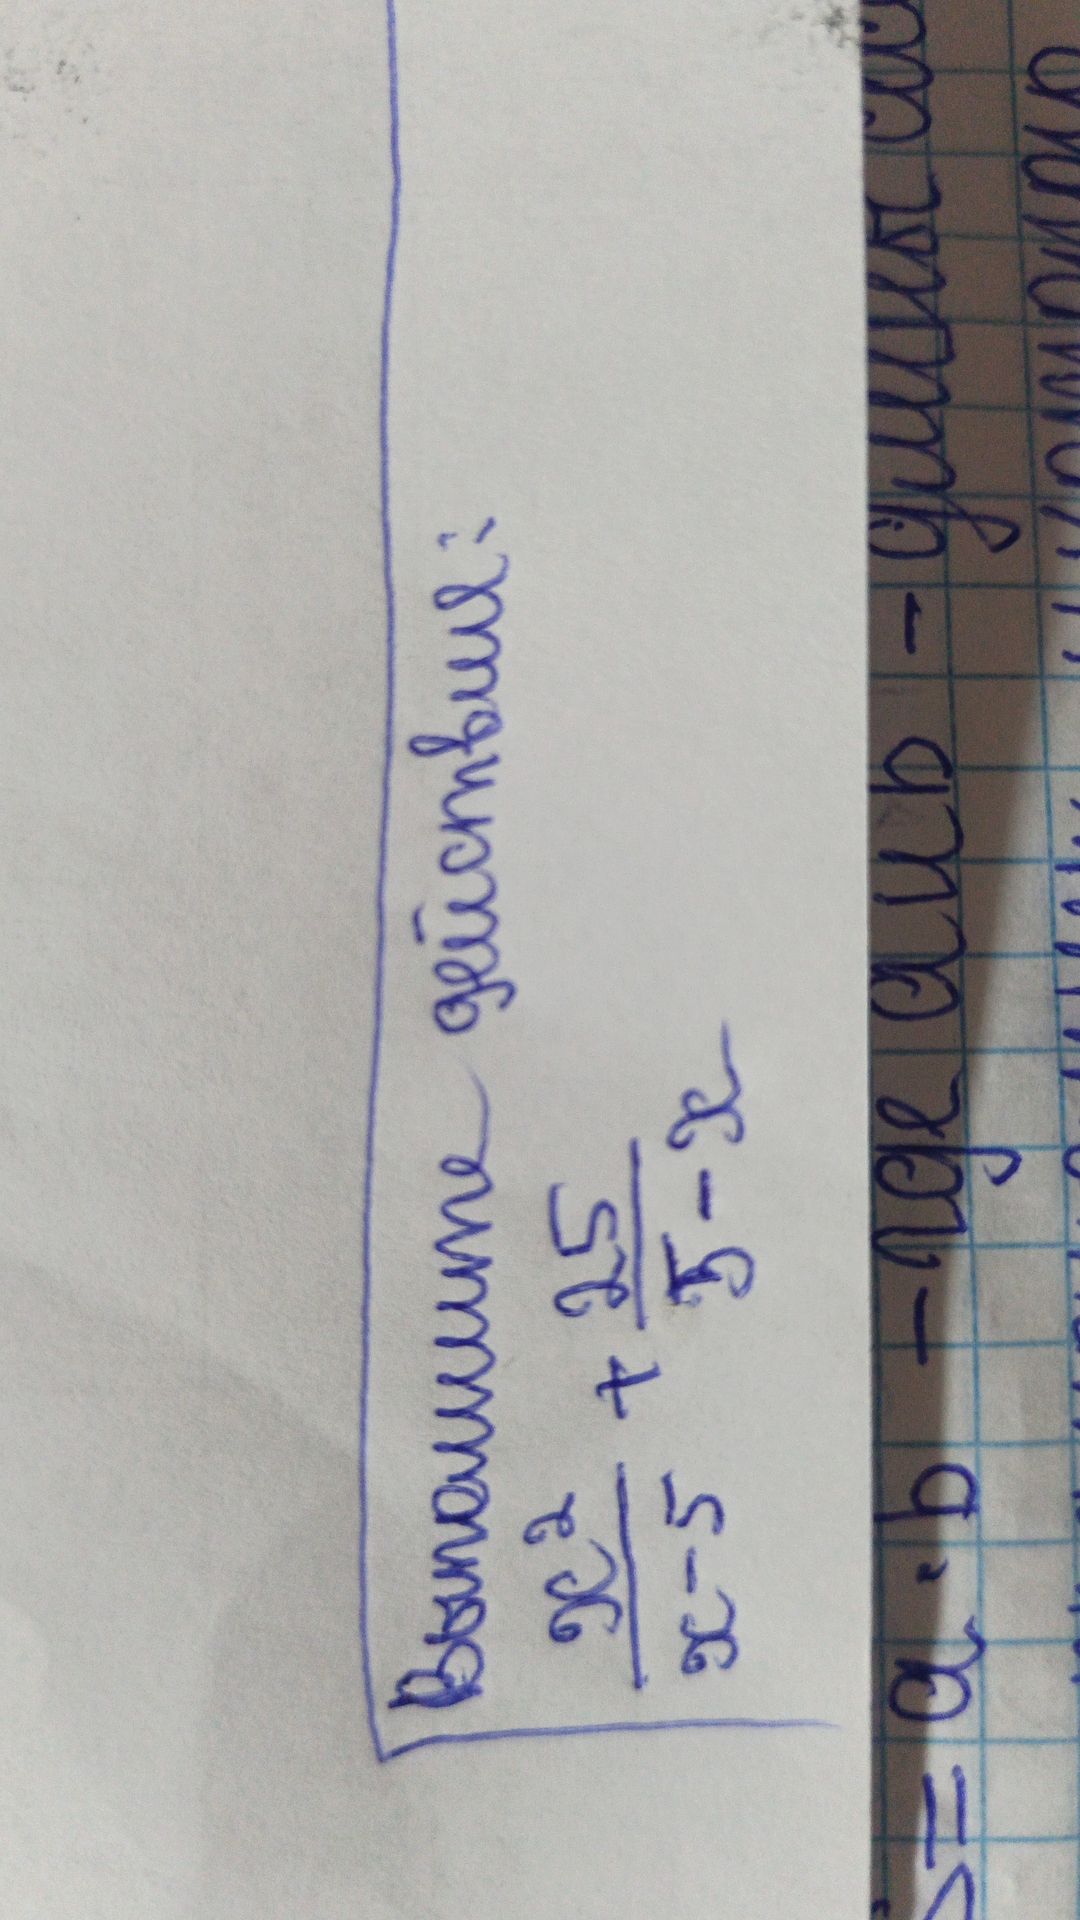 Выполните действия:
x²/(x-5) + 25/(5-x)
S = a · b - где a и b - длины